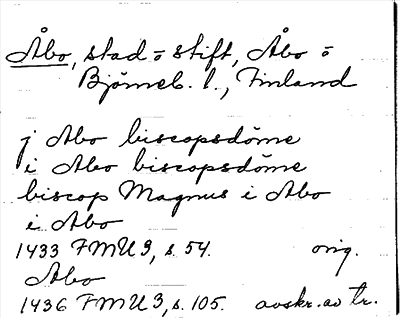 Åbo, stad o stift, Åbo o
Björneb. l., Finland
j Abo biscopsdöme
i Abo biscopsdöme
biscop Magnus i Abo
i Abo
1433 FMU 3, s. 54. orig.
Abo
1436 FMU 3, s. 105. avskr. av tr.